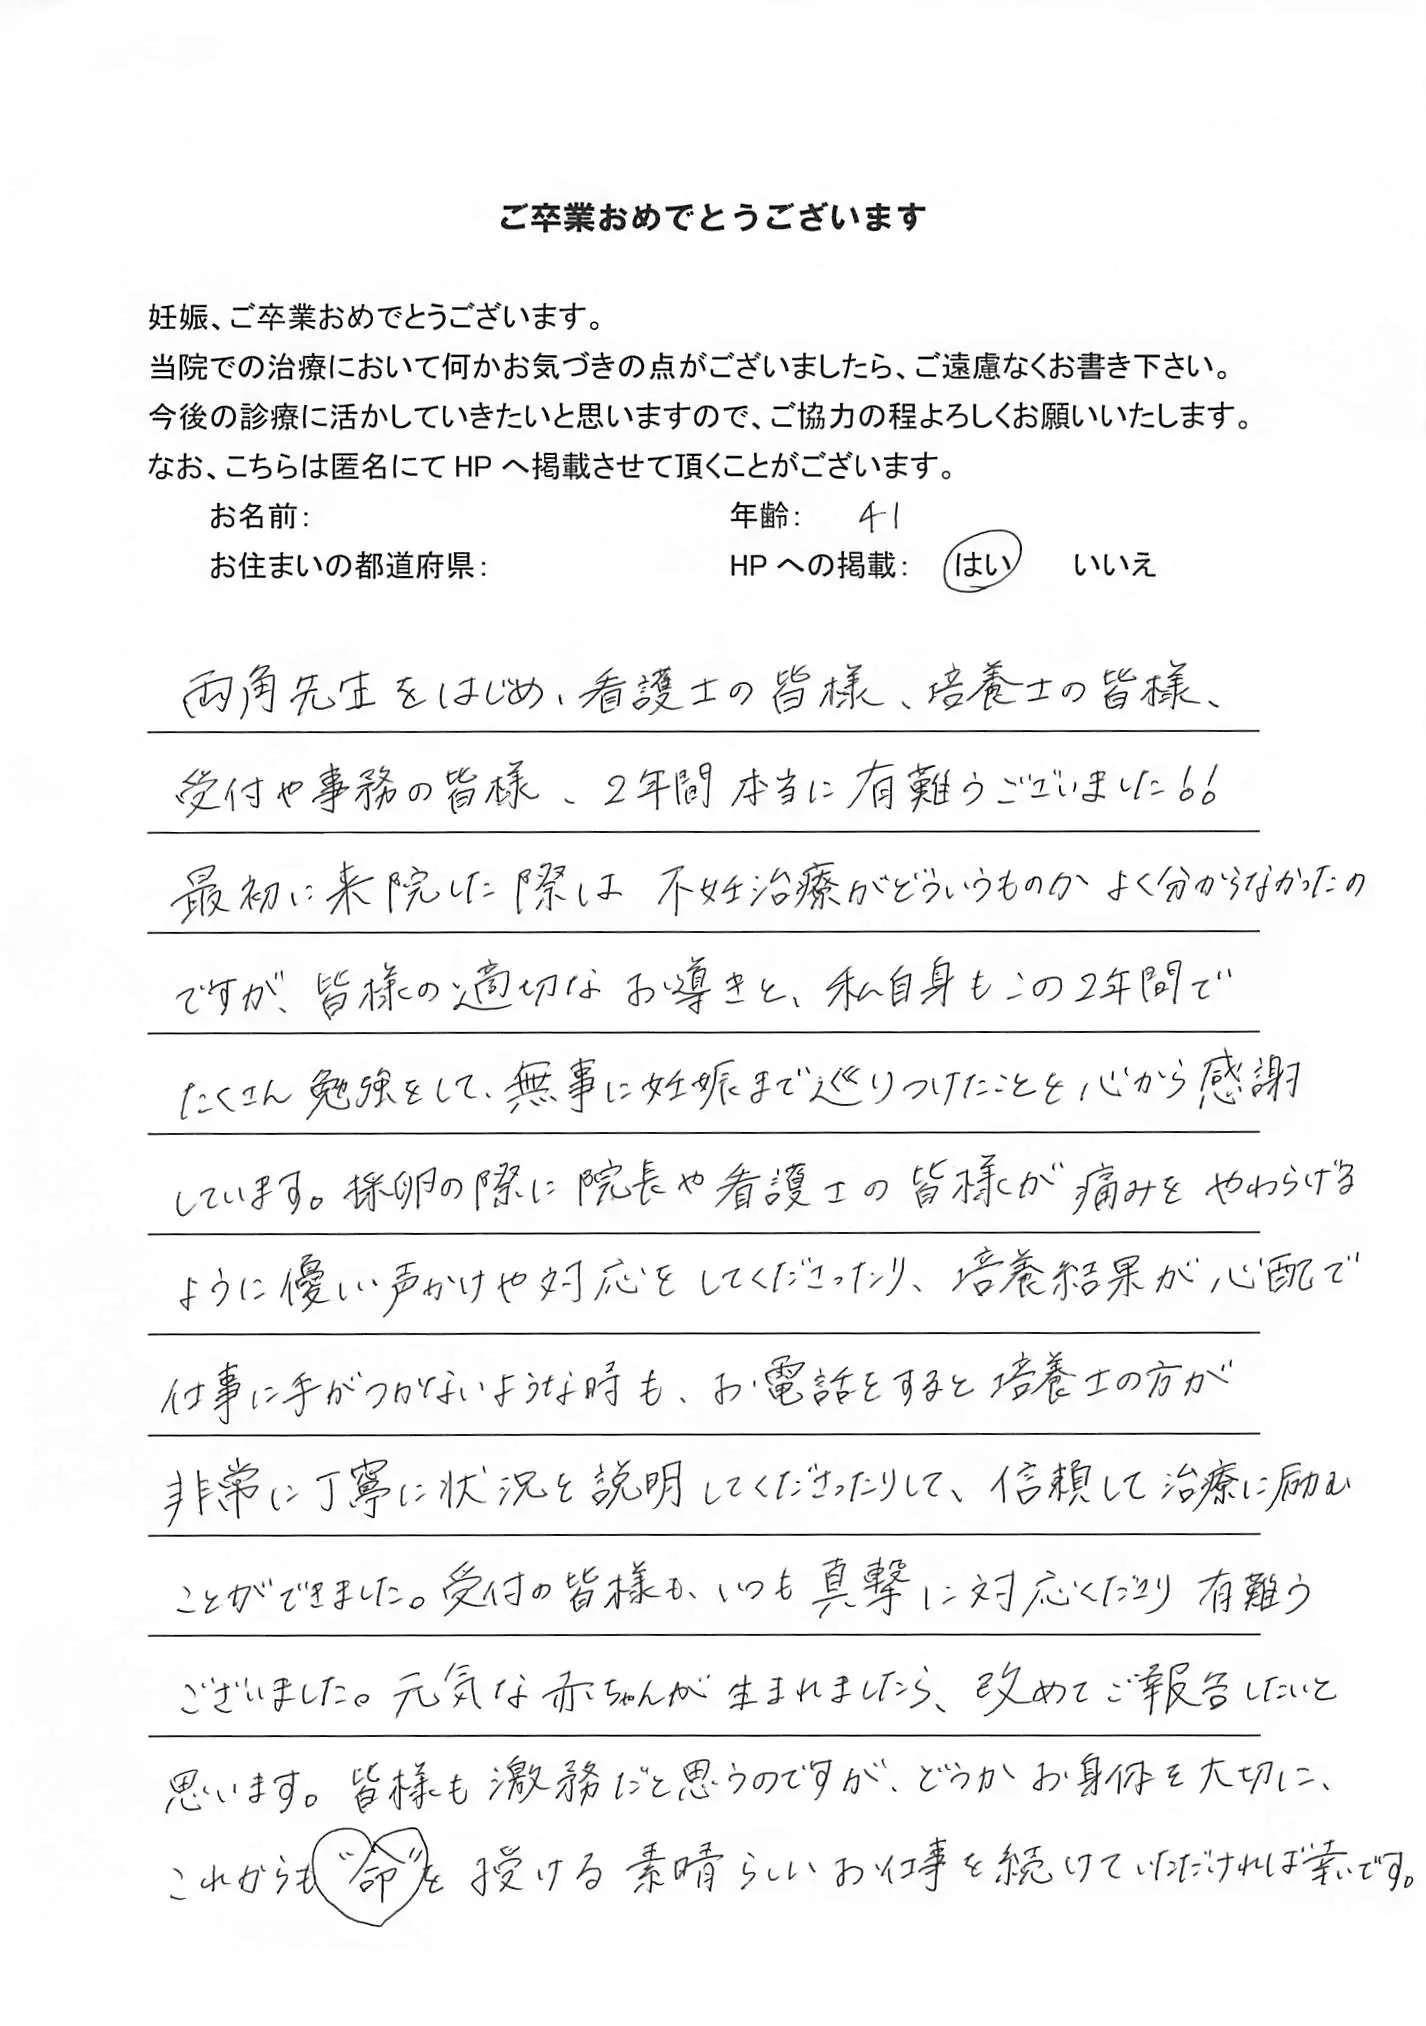 ご卒業おめでとうございます
妊娠、ご卒業おめでとうございます。
当院での治療において何かお気づきの点がございましたら、ご遠慮なくお書き下さい。
今後の診療に活かしていきたいと思いますので、ご協力の程よろしくお願いいたします。
なお、こちらは匿名にて HP へ掲載させて頂くことがございます。
お名前： 年齢： 41
お住まいの都道府県： HP への掲載： はい いいえ
両角先生をはじめ、看護士の皆様、培養士の皆様、
受付や事務の皆様、2年間本当に有難うございました!!
最初に来院した際は不妊治療がどういうものかよく分からなかったの
ですが、皆様の適切なお導きと、私自身もこの2年間で
たくさん勉強をして、無事に妊娠まで巡りつけたことを心から感謝
しています。採卵の際に院長や看護士の皆様が痛みをやわらげる
ように優しい声かけや対応をしてくださったり、培養結果が心配で
仕事に手がつかないような時も、お電話をすると培養士の方が
非常に丁寧に状況を説明してくださったりして、信頼して治療に励む
ことができました。受付の皆様も、いつも真撃に対応くださり有難う
ございました。元気な赤ちゃんが生まれましたら、改めてご報告したいと
思います。皆様も激務だと思うのですが、どうかお身体を大切に、
これからも"命"を授ける素晴らしいお仕事を続けていただければ幸いです。